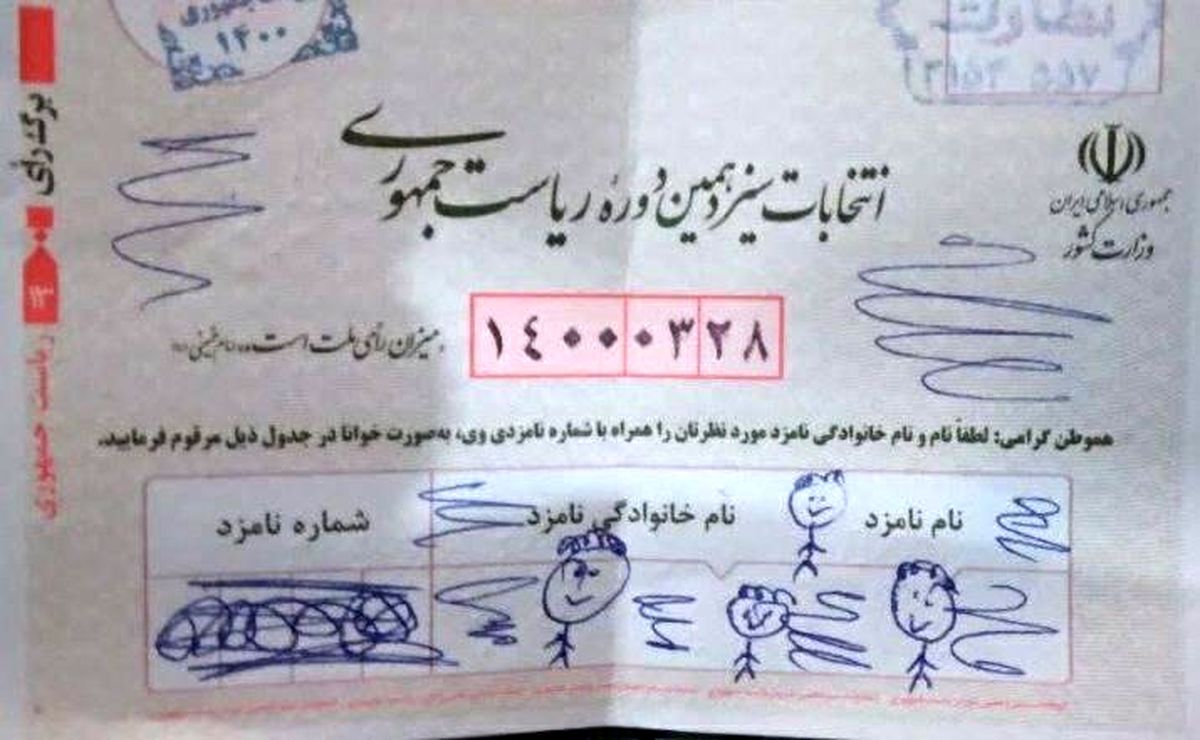 ۱۴۰۰
نظارت
جمهوری اسلامی ایران
وزارت کشور
انتخابات سیزدهمین دوره ریاست جمهوری
۱۴۰۰۰۳۲۸
میزان رأی ملت است
هموطن گرامی: لطفاً نام و نام خانوادگی نامزد مورد نظرتان را همراه با شماره نامزدی وی، به‌صورت خوانا در جدول ذیل مرقوم فرمایید.
نام نامزد
نام خانوادگی نامزد
شماره نامزد
برگ رأی
۱۳
ریاست جمهوری